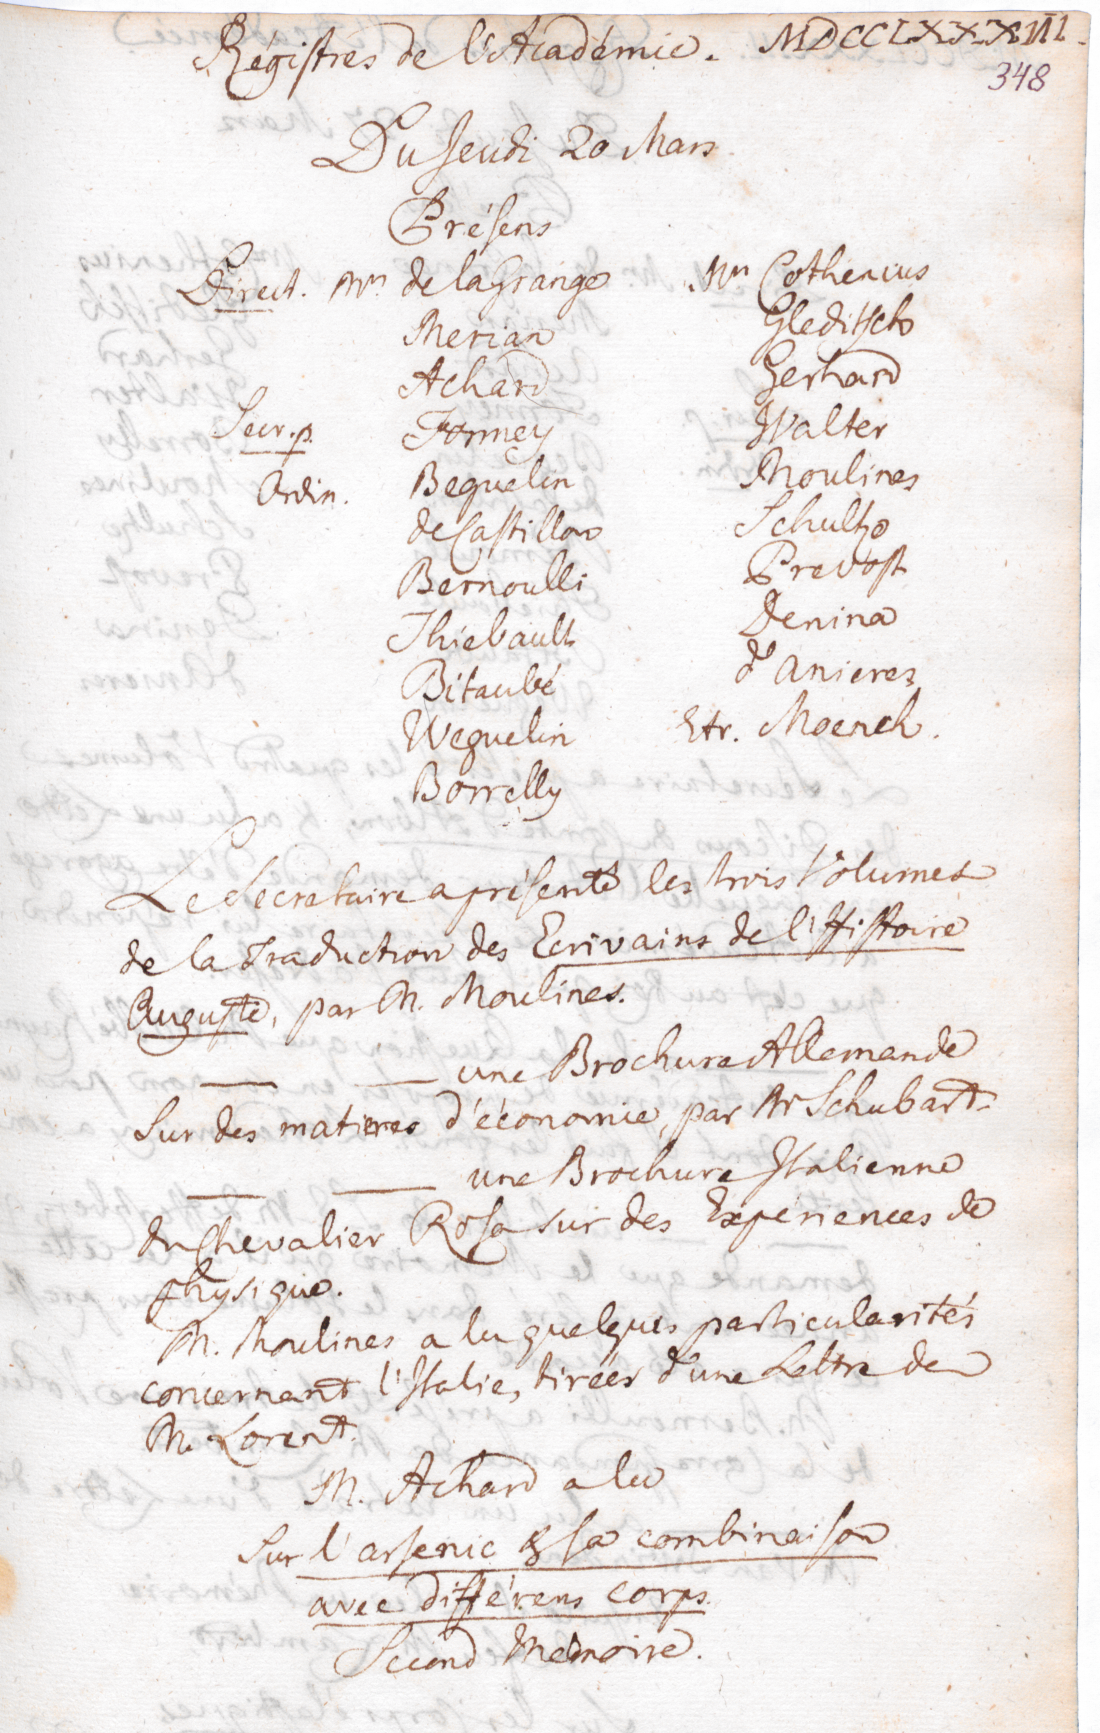 Régistres de l'Académie. MDCCLXXXIII.
348
Du Jeudi 20 Mars
Présens
Direct. Mrs. de la Grange
Merian
Achard
Secr. p. Formey
Ordin. Beguelin
de Castillon
Bernoulli
Thiebault
Bitaubé
Weguelin
Borrelly
Mrs Cothenius
Gleditsch
Gerhard
Walter
Moulines
Schultze
Prevost
Denina
d'Anieres
Etr. Moench.
Le Secretaire a présenté les trois Volumes
de la Traduction des Ecrivains de l'Histoire
Auguste, par M. Moulines.
— — une Brochure Allemande
sur des matieres d'économie, par Mr Schubart.
— — une Brochure Italienne
du Chevalier Rosa sur des Expériences de
physique.
M. Moulines a lu quelques particularités
concernant l'Italie, tirées d'une Lettre de
M. Lorent.
M. Achard a lu
Sur l'arsenic & sa combinaison
avec différens corps.
Second Mémoire.